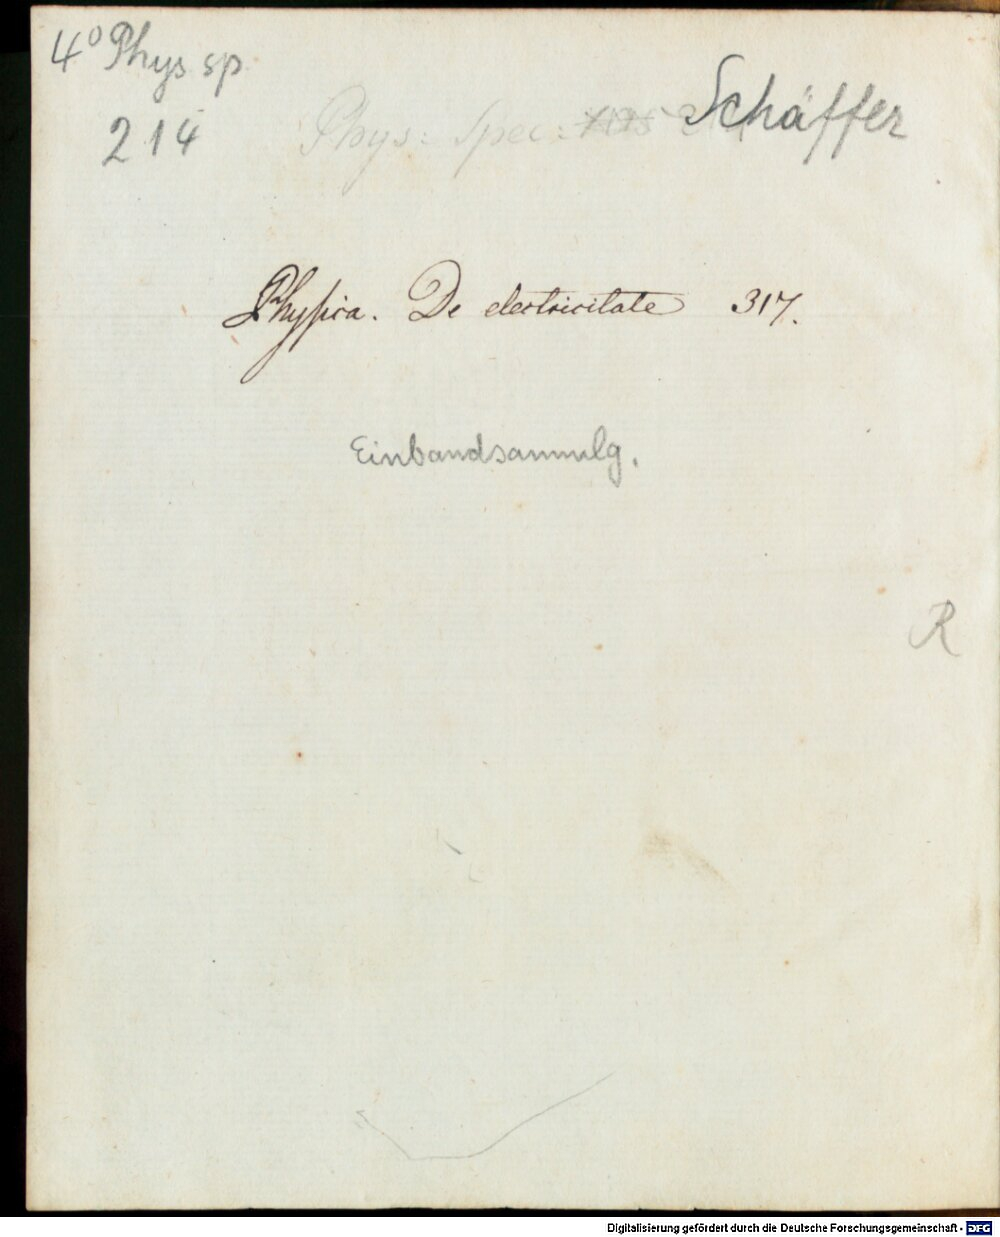 4° Phys sp
214
Phys: Spec: Schäffer
Physica. De electricitate 317.
Einbandsammlg.
R
Digitalisierung gefördert durch die Deutsche Forschungsgemeinschaft - DFG